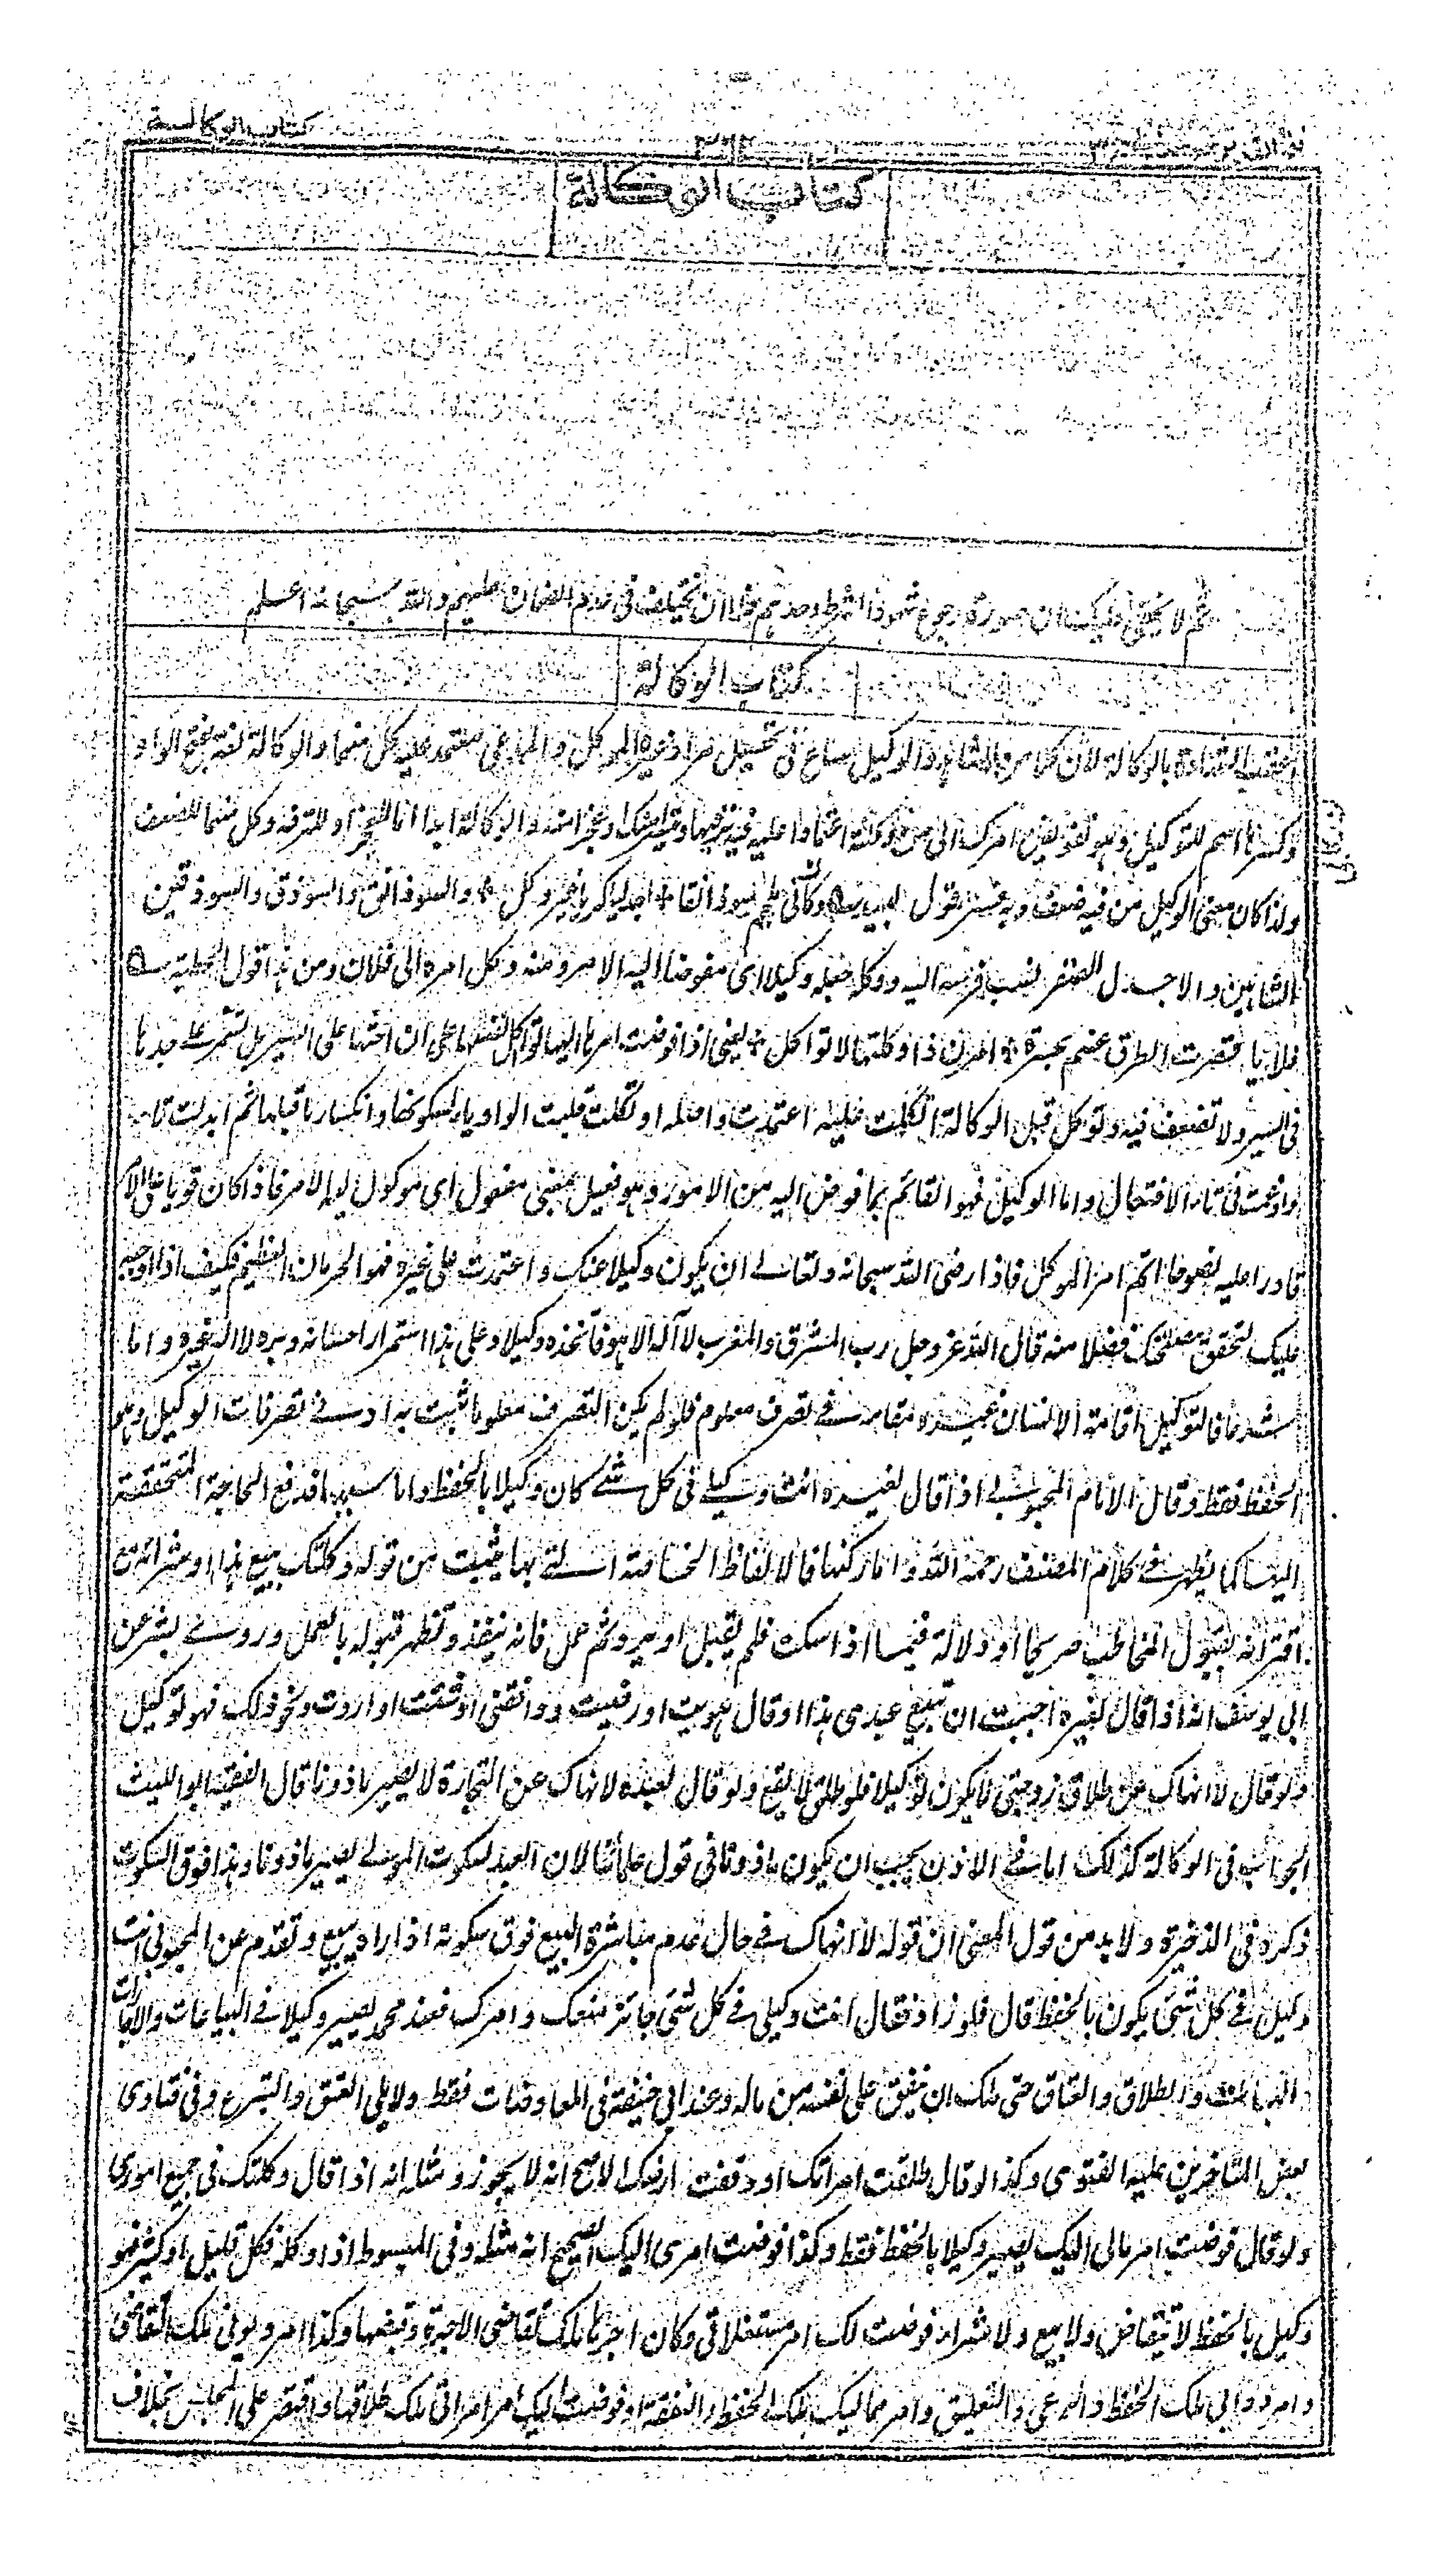 كتاب الوكالة
٣٦٤
كتاب الوكالة
ثم لا يخفى عليك ان صورة رجوع شهود الشرط وحدهم هذا ان تختلف في عدم الضمان عليهم والله سبحانه اعلم
كتاب الوكالة
اعقب الشهادة بالوكالة لان كلا من الشاهد والوكيل ساع في تحصيل مراد غيره الموكل والمدعى معتمد عليه كل منهما والوكالة لغة بفتح الواو
وكسرها اسم للتوكيل وهو تفويض امرك الى من وكلته اعتمادا عليه فيه ترفها منك او عجزا عنه والوكالة ابدا اما للعجز او للترفه وكل منهما للضعف
ولذا كان معنى الوكيل من فيه ضعف وبه فسر قول لبيد وكانى ملجم سوذانقا اجدليا كره غير وكل والسوذانق والسوذق والسوذقين
الشاهين والاجدل الصقر نسب فرسه اليه ووكله جعله وكيلا اى مفوضا اليه الامر ومنه وكل امره الى فلان ومن هذا قول الحطيئة
فلايا قصرت الطرف عنهم بجسرة امون اذا واكلتها لا تواكل يعنى اذا فوضت امرها اليها لا تواكل نفسها على ان احثها على السير بل تستمر على جدها
في السير ولا تضعف فيه وتوكل قبل الوكالة اتكلت عليه اعتمدت واصله اوتكلت قلبت الواو ياء لسكونها وانكسار ما قبلها ثم ابدلت تاء
وادغمت في تاء الافتعال واما الوكيل فهو القائم بما فوض اليه من الامور وهو فعيل بمعنى مفعول اى موكول اليه الامر فاذا كان قويا على الامر
قادرا عليه نصوحا اتم امر الموكل فاذا رضى الله سبحانه وتعالى ان يكون وكيلا عنك واعتمدت على غيره فهو الحرمان العظيم فكيف اذا اوجبه
عليك لتحقق مصلحتك فضلا منه قال الله عز وجل رب المشرق والمغرب لا اله الا هو فاتخذه وكيلا وعلى هذا استمرار احسانه وبره لا اله غيره واما
شرعا فالتوكيل اقامة الانسان غيره مقامه في تصرف معلوم فلو لم يكن التصرف معلوما ثبت به ادنى تصرفات الوكيل وهو
الحفظ فقط وقال الامام المحبوبى اذا قال لغيره انت وكيلى في كل شئ كان وكيلا بالحفظ واما سببها فدفع الحاجة المتحققة
اليها كما يظهر في كلام المصنف رحمه الله واما ركنها فالالفاظ الخاصة التى بها يثبت من قوله وكلتك ببيع هذا او شرائه مع
اقترانه بقبول المخاطب صريحا او دلالة فيما اذا سكت فلم يقبل او يرد ثم عمل فانه ينفذ ويظهر قبوله بالعمل وروى بشر عن
ابى يوسف انه اذا قال لغيره احببت ان تبيع عبدى هذا او قال هويت او رضيت ووافقنى او شئت او اردت ونحو ذلك فهو توكيل
ولو قال لا انهاك عن طلاق زوجتى لا يكون توكيلا فلو طلق لا يقع ولو قال لعبده لا انهاك عن التجارة لا يصير ماذونا قال الفقيه ابو الليث
الجواب في الوكالة كذلك اما في الاذن يجب ان يكون ماذونا في قول علمائنا لان العبد لسكوت المولى يصير ماذونا وهذا فوق السكوت
ذكره في الذخيرة ولا بد من قول المعنى ان قوله لا انهاك في حال عدم مباشرة البيع فوق سكوته اذا راه يبيع وتقدم عن المحبوبى انت
وكيلى في كل شئ يكون بالحفظ قال فلو زاد فقال انت وكيلى في كل شئ جائز صنعك وامرك فعند محمد يصير وكيلا في البياعات والاجارات
والهبات والطلاق والعتاق حتى ملك ان ينفق على نفسه من ماله وعند ابى حنيفة في المعاوضات فقط ولا يلى العتق والتبرع وفى فتاوى
بعض المتاخرين عليه الفتوى وكذا لو قال طلقت امراتك او وقفت ارضك الاصح انه لا يجوز ومثله انه اذا قال وكلتك في جميع امورى
ولو قال فوضت امر مالى اليك يصير وكيلا بالحفظ فقط وكذا فوضت امرى اليك الصحيح انه مثله وفى المبسوط اذا وكله بكل قليل او كثير فهو
وكيل بالحفظ لا بتقاض ولا بيع ولا شراء فوضت لك امر مستغلاتى وكان اجرها ملك تقاضى الاجرة وقبضها وكذا امر ديونى ملك التقاضى
وامر دوابى ملك الحفظ والرعى والتعليق وامر مماليكى ملك الحفظ والنفقة او فوضت اليك امر امراتى ملك طلاقها واقتصر على المجلس بخلاف